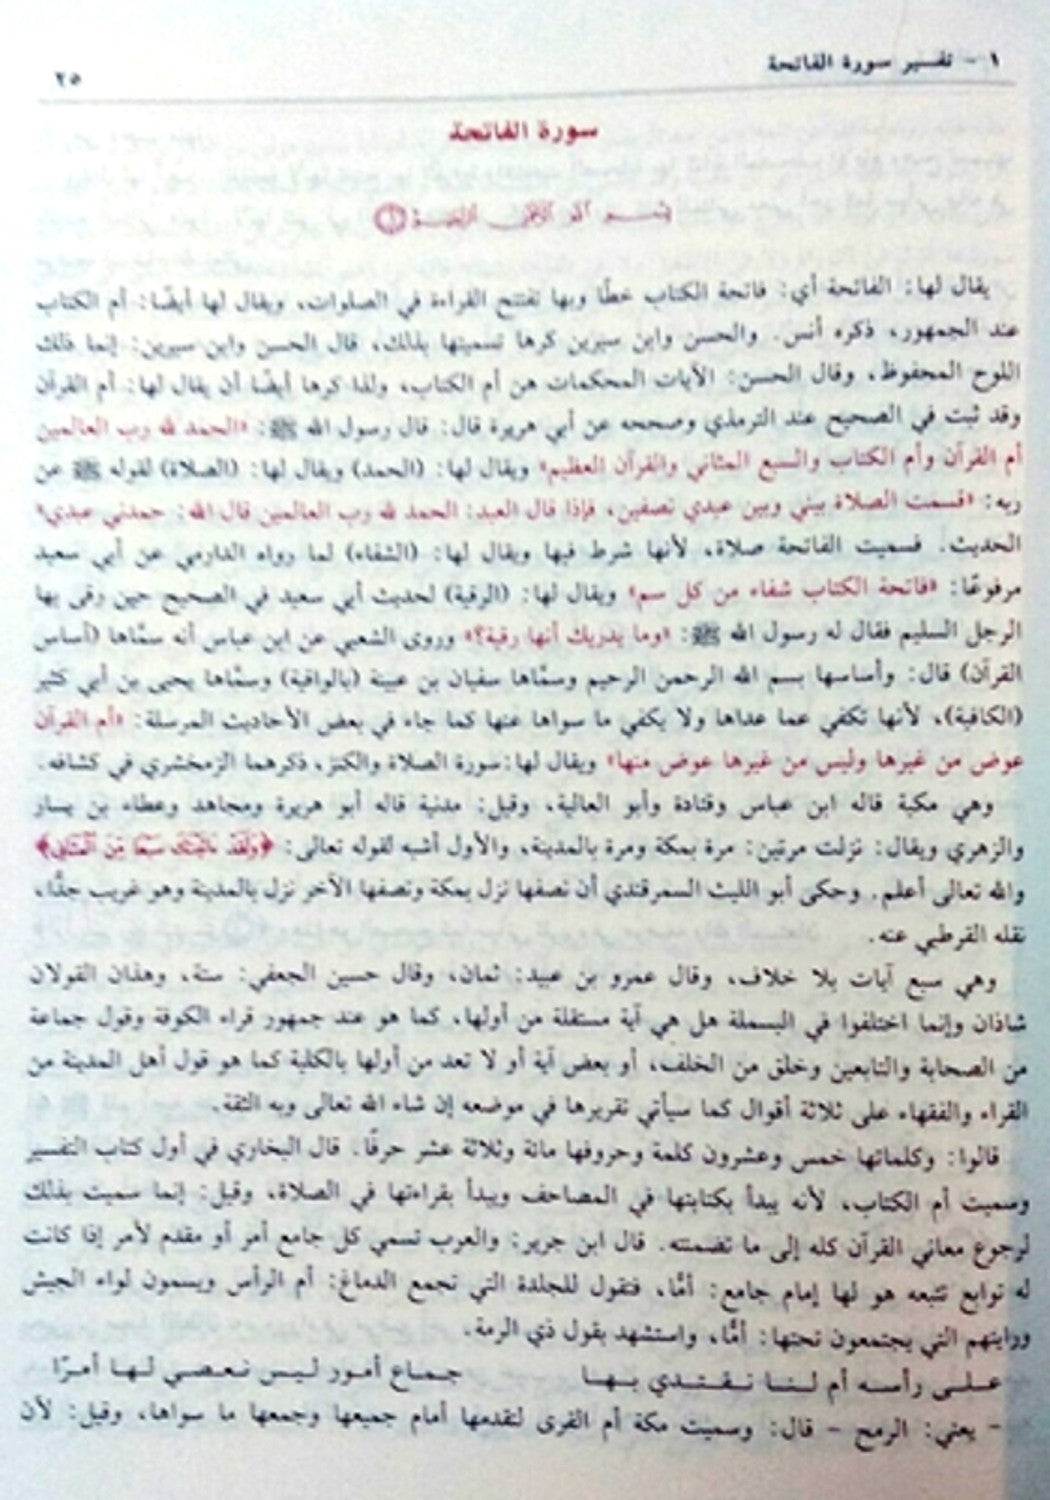 ١ - تفسير سورة الفاتحة
٢٥
سورة الفاتحة
بسم الله الرحمن الرحيم ①
يقال لها: الفاتحة أي: فاتحة الكتاب خطًا وبها تفتتح القراءة في الصلوات، ويقال لها أيضًا: أم الكتاب
عند الجمهور، ذكره أنس. والحسن وابن سيرين كرها تسميتها بذلك، قال الحسن وابن سيرين: إنما ذلك
اللوح المحفوظ، وقال الحسن: الآيات المحكمات هن أم الكتاب، ولذا كرها أيضًا أن يقال لها: أم القرآن
وقد ثبت في الصحيح عند الترمذي وصححه عن أبي هريرة قال: قال رسول الله ﷺ: «الحمد لله رب العالمين
أم القرآن وأم الكتاب والسبع المثاني والقرآن العظيم» ويقال لها: (الحمد) ويقال لها: (الصلاة) لقوله ﷺ عن
ربه: «قسمت الصلاة بيني وبين عبدي نصفين، فإذا قال العبد: الحمد لله رب العالمين قال الله: حمدني عبدي»
الحديث. فسميت الفاتحة صلاة، لأنها شرط فيها ويقال لها: (الشفاء) لما رواه الدارمي عن أبي سعيد
مرفوعًا: «فاتحة الكتاب شفاء من كل سم» ويقال لها: (الرقية) لحديث أبي سعيد في الصحيح حين رقى بها
الرجل السليم فقال له رسول الله ﷺ: «وما يدريك أنها رقية؟» وروى الشعبي عن ابن عباس أنه سمّاها (أساس
القرآن) قال: وأساسها بسم الله الرحمن الرحيم وسمّاها سفيان بن عيينة (بالواقية) وسمّاها يحيى بن أبي كثير
(الكافية)، لأنها تكفي عما عداها ولا يكفي ما سواها عنها كما جاء في بعض الأحاديث المرسلة: «أم القرآن
عوض من غيرها وليس من غيرها عوض منها» ويقال لها: سورة الصلاة والكنز، ذكرهما الزمخشري في كشافه.
وهي مكية قاله ابن عباس وقتادة وأبو العالية، وقيل: مدنية قاله أبو هريرة ومجاهد وعطاء بن يسار
والزهري ويقال: نزلت مرتين: مرة بمكة ومرة بالمدينة، والأول أشبه لقوله تعالى: ﴿ولقد ءاتينك سبعا من المثاني﴾
والله تعالى أعلم. وحكى أبو الليث السمرقندي أن نصفها نزل بمكة ونصفها الآخر نزل بالمدينة وهو غريب جدًّا،
نقله القرطبي عنه.
وهي سبع آيات بلا خلاف، وقال عمرو بن عبيد: ثمان، وقال حسين الجعفي: ستة، وهذان القولان
شاذان وإنما اختلفوا في البسملة هل هي آية مستقلة من أولها، كما هو عند جمهور قراء الكوفة وقول جماعة
من الصحابة والتابعين وخلق من الخلف، أو بعض آية أو لا تعد من أولها بالكلية كما هو قول أهل المدينة من
القراء والفقهاء على ثلاثة أقوال كما سيأتي تقريرها في موضعه إن شاء الله تعالى وبه الثقة.
قالوا: وكلماتها خمس وعشرون كلمة وحروفها مائة وثلاثة عشر حرفًا. قال البخاري في أول كتاب التفسير
وسميت أم الكتاب، لأنه يبدأ بكتابتها في المصاحف ويبدأ بقراءتها في الصلاة، وقيل: إنما سميت بذلك
لرجوع معاني القرآن كله إلى ما تضمنته. قال ابن جرير: والعرب تسمي كل جامع أمر أو مقدم لأمر إذا كانت
له توابع تتبعه هو لها إمام جامع: أمًّا، فتقول للجلدة التي تجمع الدماغ: أم الرأس ويسمون لواء الجيش
ورايتهم التي يجتمعون تحتها: أمًّا، واستشهد بقول ذي الرمة.
على رأسه أم لنا نقتدي بها جماع أمور ليس نعصي لها أمرًا
- يعني: الرمح - قال: وسميت مكة أم القرى لتقدمها أمام جميعها وجمعها ما سواها، وقيل: لأن